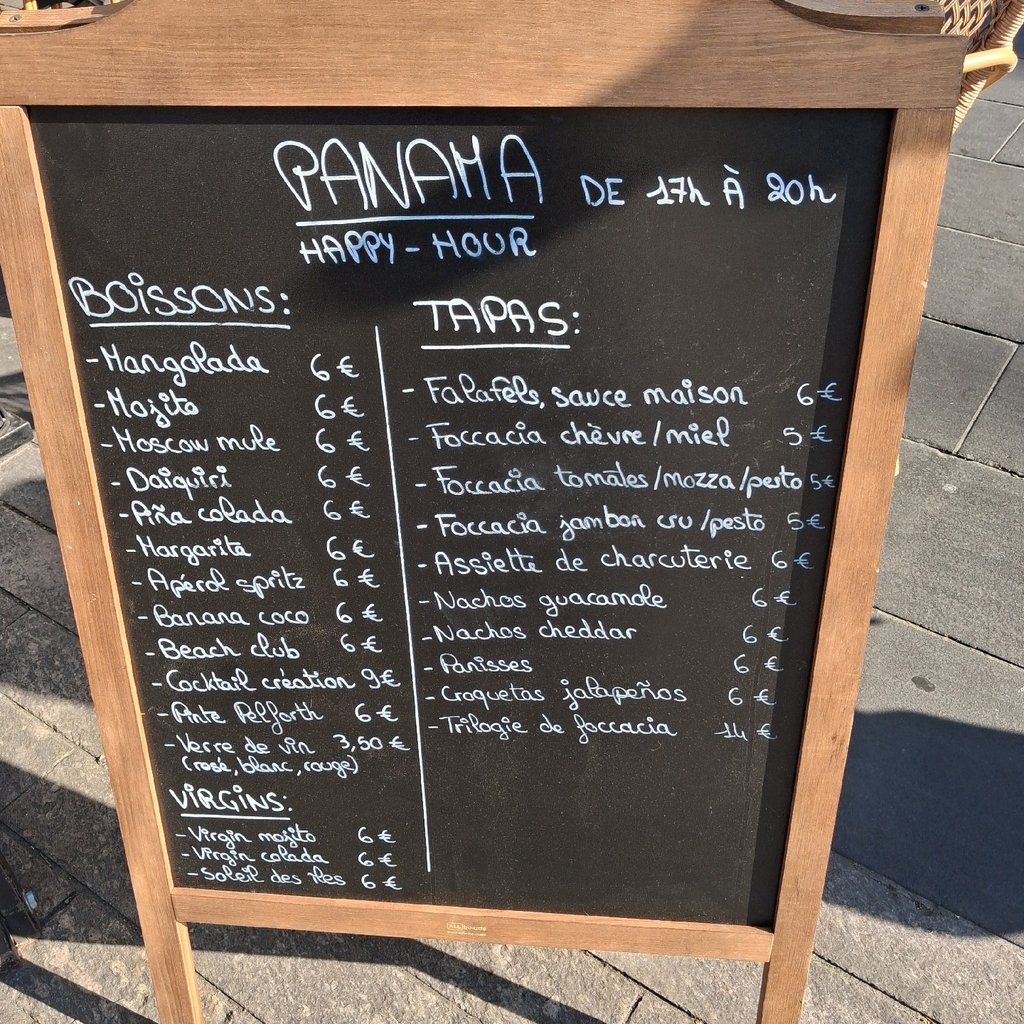 PANAMA DE 17h À 20h
HAPPY-HOUR
BOISSONS:
-Mangolada 6€
-Mojito 6€
-Moscow mule 6€
-Daiquiri 6€
-Piña colada 6€
-Margarita 6€
-Apérol spritz 6€
-Banana coco 6€
-Beach club 6€
-Cocktail création 9€
-Pinte Pelforth 6€
-Verre de vin 3,50€
(rosé, blanc, rouge)
VIRGINS:
-Virgin mojito 6€
-Virgin colada 6€
-Soleil des îles 6€
TAPAS:
- Falafels, sauce maison 6€
- Foccacia chèvre/miel 5€
- Foccacia tomates/mozza/pesto 5€
- Foccacia jambon cru/pesto 5€
-Assiette de charcuterie 6€
-Nachos guacamole 6€
-Nachos cheddar 6€
-Panisses 6€
-Croquetas jalapeños 6€
-Trilogie de foccacia 14€